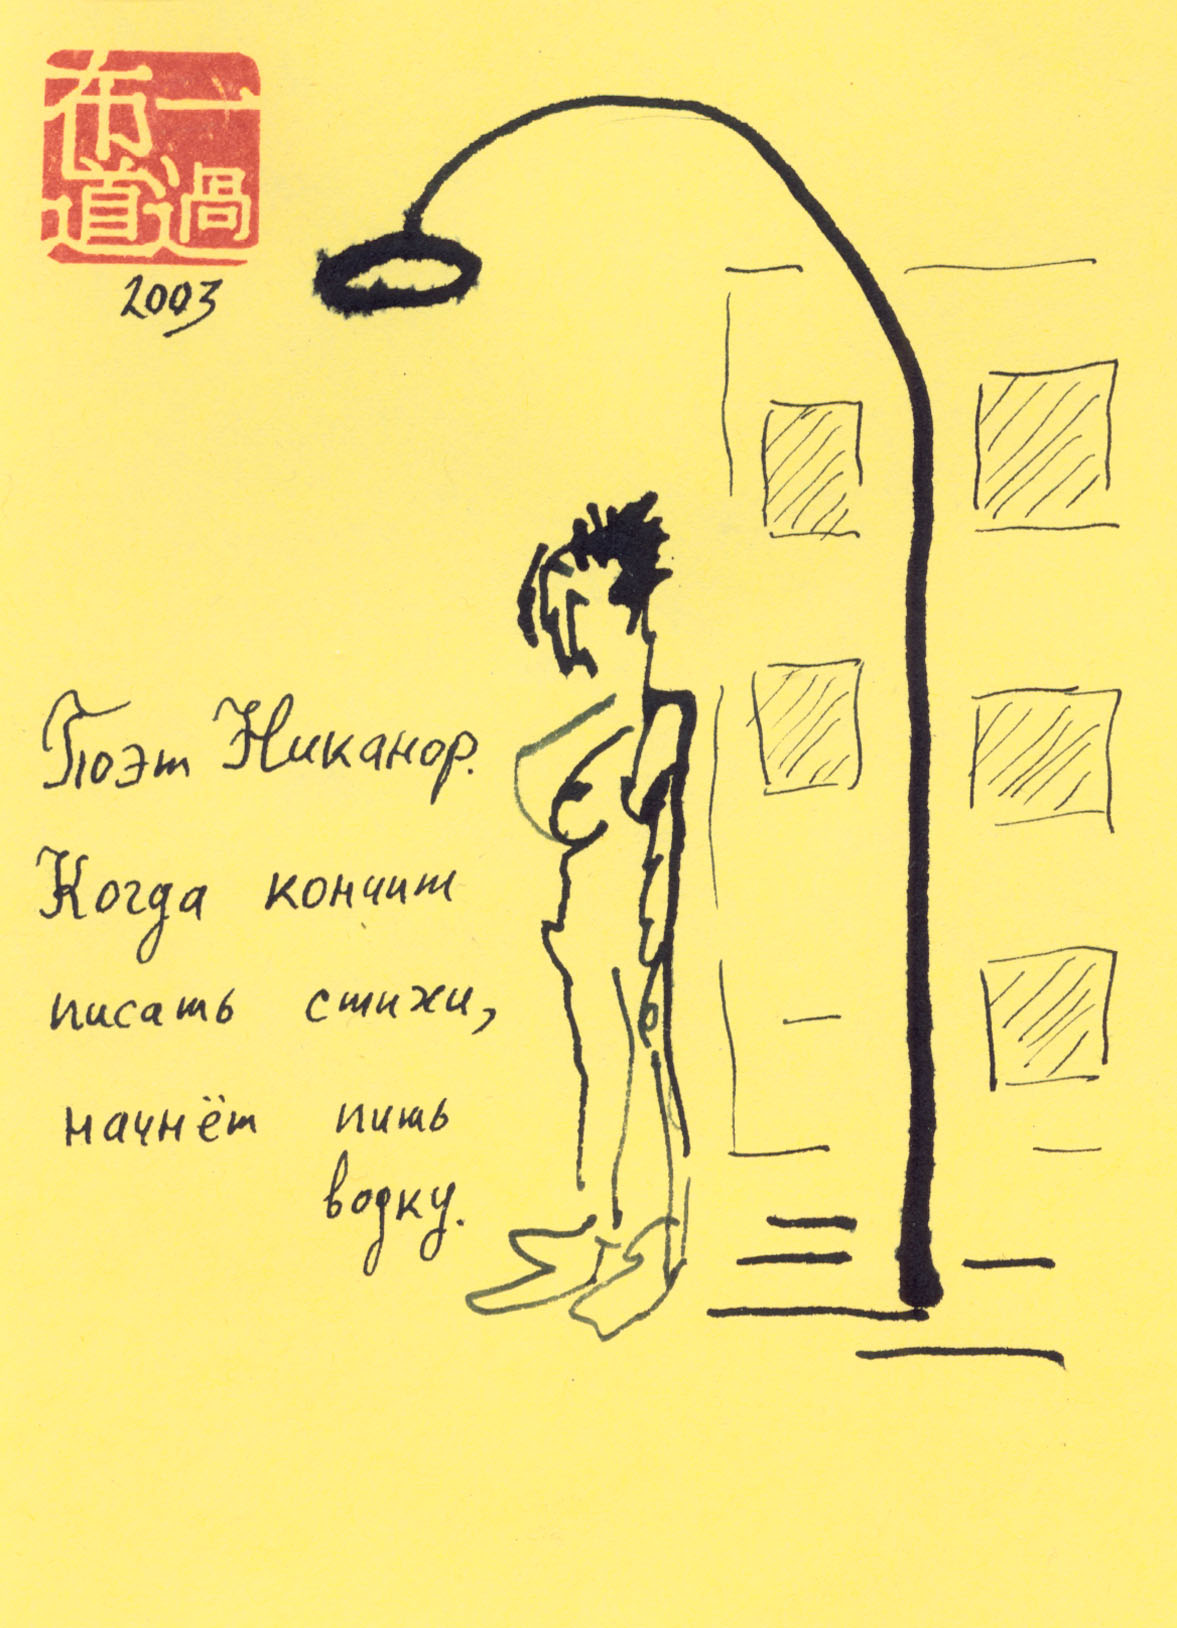 布一
道過
2003
Поэт Никанор.
Когда кончит
писать стихи,
начнёт пить
водку.